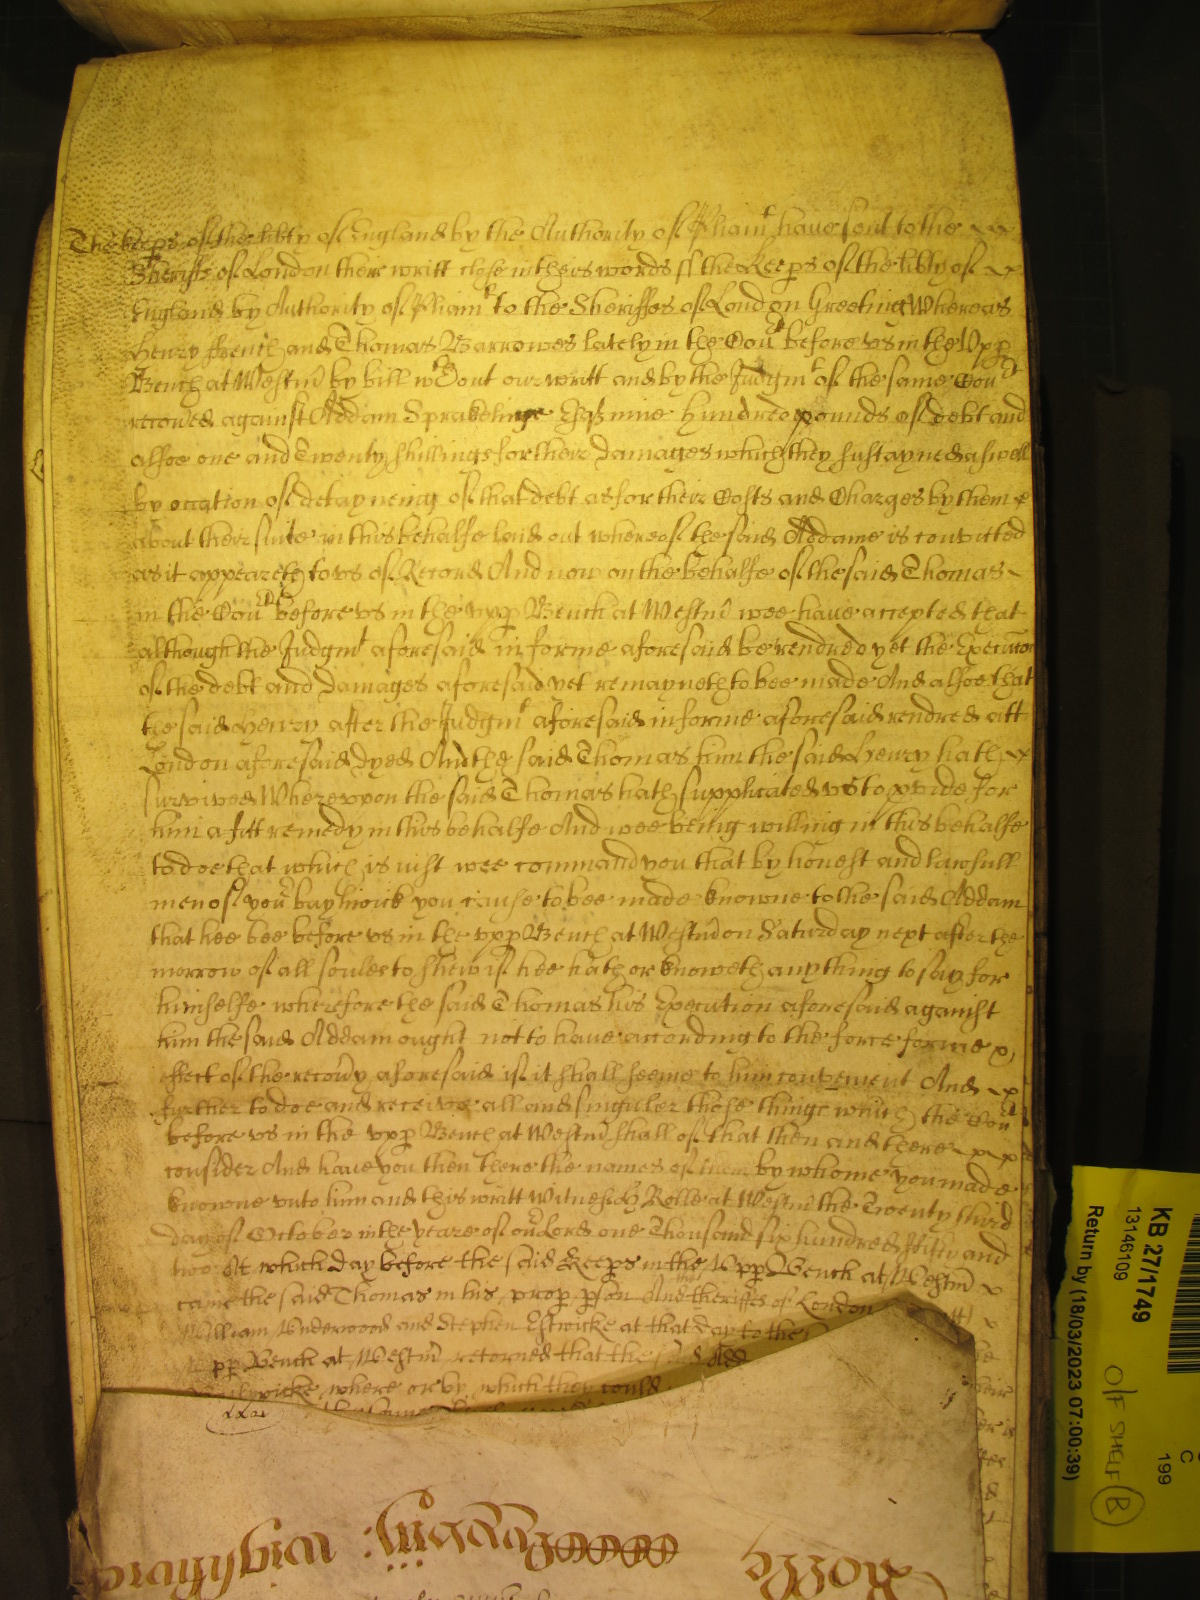 The keeps of the libty of England by the Authority of Pliamt have sent to the
Sheriffs of London their writt close in theis words ss the Keeps of the libty of
England by Authority of Pliamt to the Sheriffes of London Greeting Whereas
Henry ffrench and Thomas Barrowes lately in the Court before us in the Upp
Bench at Westm by bill wthout our writt and by the Judgmt of the same Court
recoued against Addam Sprakelinge Esq nine hundred pounds of debt and
alsoe one and Twenty shillings for their damages which they sustayned aswell
by occation of detayneing of that debt as for their Costs and Charges by them
about their suite in this behalfe laid out whereof the said Addame is convicted
as it appeareth to us of Record And now on the behalfe of the said Thomas
in the Court before us in the upp Bench at Westm wee have accepted that
although the Judgmt aforesaid in forme aforesaid be rendred yet the Execution
of the debt and damages aforesaid yet remayneth to bee made And alsoe that
the said Henry after the Judgmt aforesaid in forme aforesaid rendred att
London aforesaid dyed And the said Thomas him the said Henry hath
survived Whereupon the said Thomas hath supplicated us to pvide for
him a fitt remedy in this behalfe And wee being willing in this behalfe
to doe that which is iust wee command you that by honest and lawfull
men of your baylwick you cause to bee made knowne to the said Addam
that hee bee before us in the upp Bench at Westm on Saturday next after the
morrow of all soules to shew if hee hath or knoweth any thing to say for
himselfe wherefore the said Thomas his Execution aforesaid against
him the said Addam ought not to have according to the force forme &
effect of the recovy aforesaid if it shall seeme to him convenient And
further to doe and receive all and singuler those things which the Court
before us in the upp Bench at Westm shall of that then and there
consider And have you then there the names of them by whome you made
knowne unto him and this writt Witnes H Rolle at Westm the Twenty third
day of October in the yeare of our Lord one Thousand six hundred fifty and
two At which day before the said Keeps in the Upp Bench at Westm
came the said Thomas in his prop pson And the sheriffes of London
William Underwood and Stephen Estwicke at that day to the
upp Bench at Westm retorned that the said Add
Baylywicke where or by which they could
KB 27/1749
13146109
Return by (18/03/2023 07:00:39)
C
199
O/F SHELF B